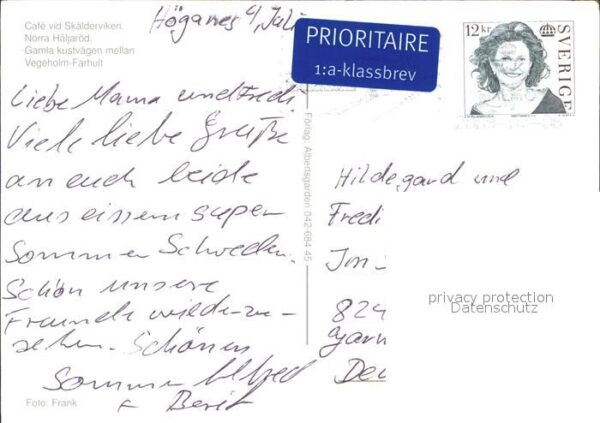 Café vid Skälderviken.
Norra Häljaröd.
Gamla kustvägen mellan
Vegeholm-Farhult
Höganes 4. Juli
PRIORITAIRE
1:a-klassbrev
12 kr
SVERIGE
Liebe Mama und Fredi
Viele liebe Grüße
an euch beide
aus einem super
Sommer Schweden.
Schön unsere
Freunde wiederzu-
sehen. Schönen
Sommer Alfred
+ Berit
Förlag: Albertsgården 042-684 45
Hildegard und
Fredi
824
privacy protection
Datenschutz
Foto: Frank